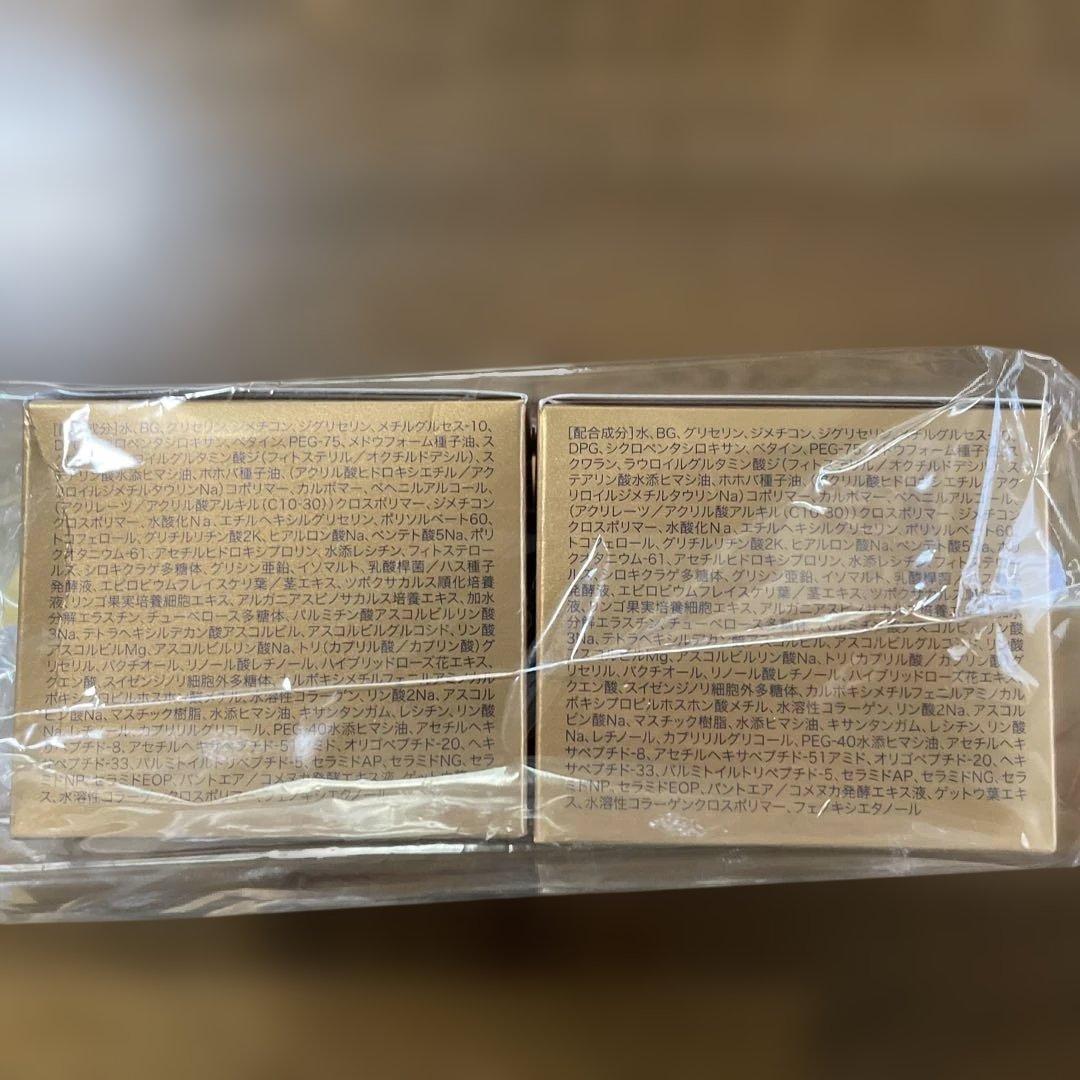 水、BG、グリセリン、ジメチコン、ジグリセリン、メチルグルセス-10、
ロペンタシロキサン、ベタイン、PEG-75、メドウフォーム種子油、ス
ロイルグルタミン酸ジ(フィトステリル/オクチルドデシル)、ス
リン酸水添ヒマシ油、ホホバ種子油、(アクリル酸ヒドロキシエチル/アク
リロイルジメチルタウリンNa)コポリマー、カルボマー、ベヘニルアルコール、
(アクリレーツ/アクリル酸アルキル(C10-30))クロスポリマー、ジメチコン
クロスポリマー、水酸化Na、エチルヘキシルグリセリン、ポリソルベート60、
トコフェロール、グリチルリチン酸2K、ヒアルロン酸Na、ペンテト酸5Na、ポリ
クオタニウム-61、アセチルヒドロキシプロリン、水添レシチン、フィトステロー
ルス、シロキクラゲ多糖体、グリシン亜鉛、イソマルト、乳酸桿菌/ハス種子
発酵液、エピロビウムフレイスケリ葉/茎エキス、ツボクサカルス順化培養
液、リンゴ果実培養細胞エキス、アルガニアスピノサカルス培養エキス、加水
分解エラスチン、チューベロース多糖体、パルミチン酸アスコルビルリン酸
3Na、テトラヘキシルデカン酸アスコルビル、アスコルビルグルコシド、リン酸
アスコルビルMg、アスコルビルリン酸Na、トリ(カプリル酸/カプリン酸)グ
リセリル、バクチオール、リノール酸レチノール、ハイブリッドローズ花エキス、
クエン酸、スイゼンジノリ細胞外多糖体、カルボキシメチルフェニルアミノカル
ボキシプロピルホスホン酸メチル、水溶性コラーゲン、リン酸2Na、アスコル
ビン酸Na、マスチック樹脂、水添ヒマシ油、キサンタンガム、レシチン、リン酸
Na、レチノール、カプリリルグリコール、PEG-40水添ヒマシ油、アセチルヘキ
サペプチド-8、アセチルヘキサペプチド-51アミド、オリゴペプチド-20、ヘキ
サペプチド-33、パルミトイルトリペプチド-5、セラミドAP、セラミドNG、セラ
ミドNP、セラミドEOP、パントエア/コメヌカ発酵エキス液、ゲットウ
ス、水溶性コラーゲンクロスポリマー、フェノキシエタノール
[配合成分]水、BG、グリセリン、ジメチコン、ジグリセリン、メチルグルセス-10、
DPG、シクロペンタシロキサン、ベタイン、PEG-75、メドウフォーム種子油、ス
クワラン、ラウロイルグルタミン酸ジ(フィトステリル/オクチルドデシル)、ス
テアリン酸水添ヒマシ油、ホホバ種子油、(アクリル酸ヒドロキシエチル/アク
リロイルジメチルタウリンNa)コポリマー、カルボマー、ベヘニルアルコール、
(アクリレーツ/アクリル酸アルキル(C10-30))クロスポリマー、ジメチコン
クロスポリマー、水酸化Na、エチルヘキシルグリセリン、ポリソルベート60、
トコフェロール、グリチルリチン酸2K、ヒアルロン酸Na、ペンテト酸5Na、ポリ
クオタニウム-61、アセチルヒドロキシプロリン、水添レシチン、フィトステロー
ルス、シロキクラゲ多糖体、グリシン亜鉛、イソマルト、乳酸桿菌/ハス種子
発酵液、エピロビウムフレイスケリ葉/茎エキス、ツボクサカルス順化培養
液、リンゴ果実培養細胞エキス、アルガニアスピノサカルス培養エキス、加水
分解エラスチン、チューベロース多糖体、パルミチン酸アスコルビルリン酸
3Na、テトラヘキシルデカン酸アスコルビル、アスコルビルグルコシド、リン酸
アスコルビルMg、アスコルビルリン酸Na、トリ(カプリル酸/カプリン酸)グ
リセリル、バクチオール、リノール酸レチノール、ハイブリッドローズ花エキス、
クエン酸、スイゼンジノリ細胞外多糖体、カルボキシメチルフェニルアミノカル
ボキシプロピルホスホン酸メチル、水溶性コラーゲン、リン酸2Na、アスコル
ビン酸Na、マスチック樹脂、水添ヒマシ油、キサンタンガム、レシチン、リン酸
Na、レチノール、カプリリルグリコール、PEG-40水添ヒマシ油、アセチルヘキ
サペプチド-8、アセチルヘキサペプチド-51アミド、オリゴペプチド-20、ヘキ
サペプチド-33、パルミトイルトリペプチド-5、セラミドAP、セラミドNG、セラ
ミドNP、セラミドEOP、パントエア/コメヌカ発酵エキス液、ゲットウ葉エキ
ス、水溶性コラーゲンクロスポリマー、フェノキシエタノール